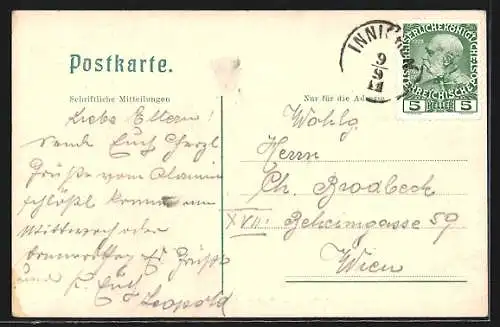 Postkarte.
Schriftliche Mitteilungen
Nur für die Adresse
INNICHEN
9
9
11
KAISERLICHE KÖNIGLICHE
ÖSTERREICHISCHE
5 HELLER 5
Liebe Eltern!
Sende Euch herzl
Grüße vom
schlößl komme am
Mittwoch oder
Donnerstag
und k. Euch
Leopold
Wohlg.
Herrn
Ch. Brodbeck
XVII. Beheimgasse 59
Wien